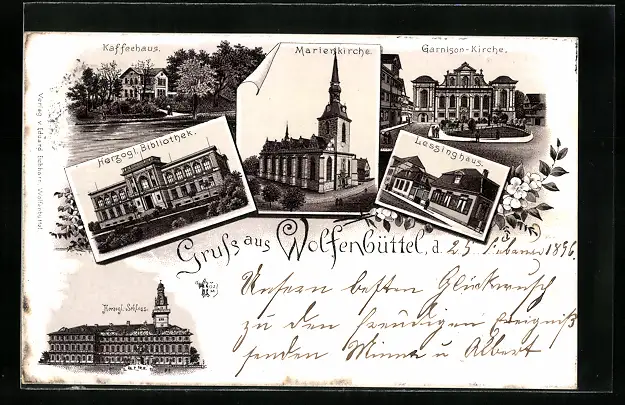 Kaffeehaus.
Marienkirche.
Garnison-Kirche.
Herzogl. Bibliothek.
Lessinghaus.
Verlag v.
Wolfenbüttel
Gruß aus Wolfenbüttel, d. 25. Februar 1896.
Herzogl. Schloss.
Unsern besten Glückwusch
zu den freudigen Ereigniß
senden Minna u Albert